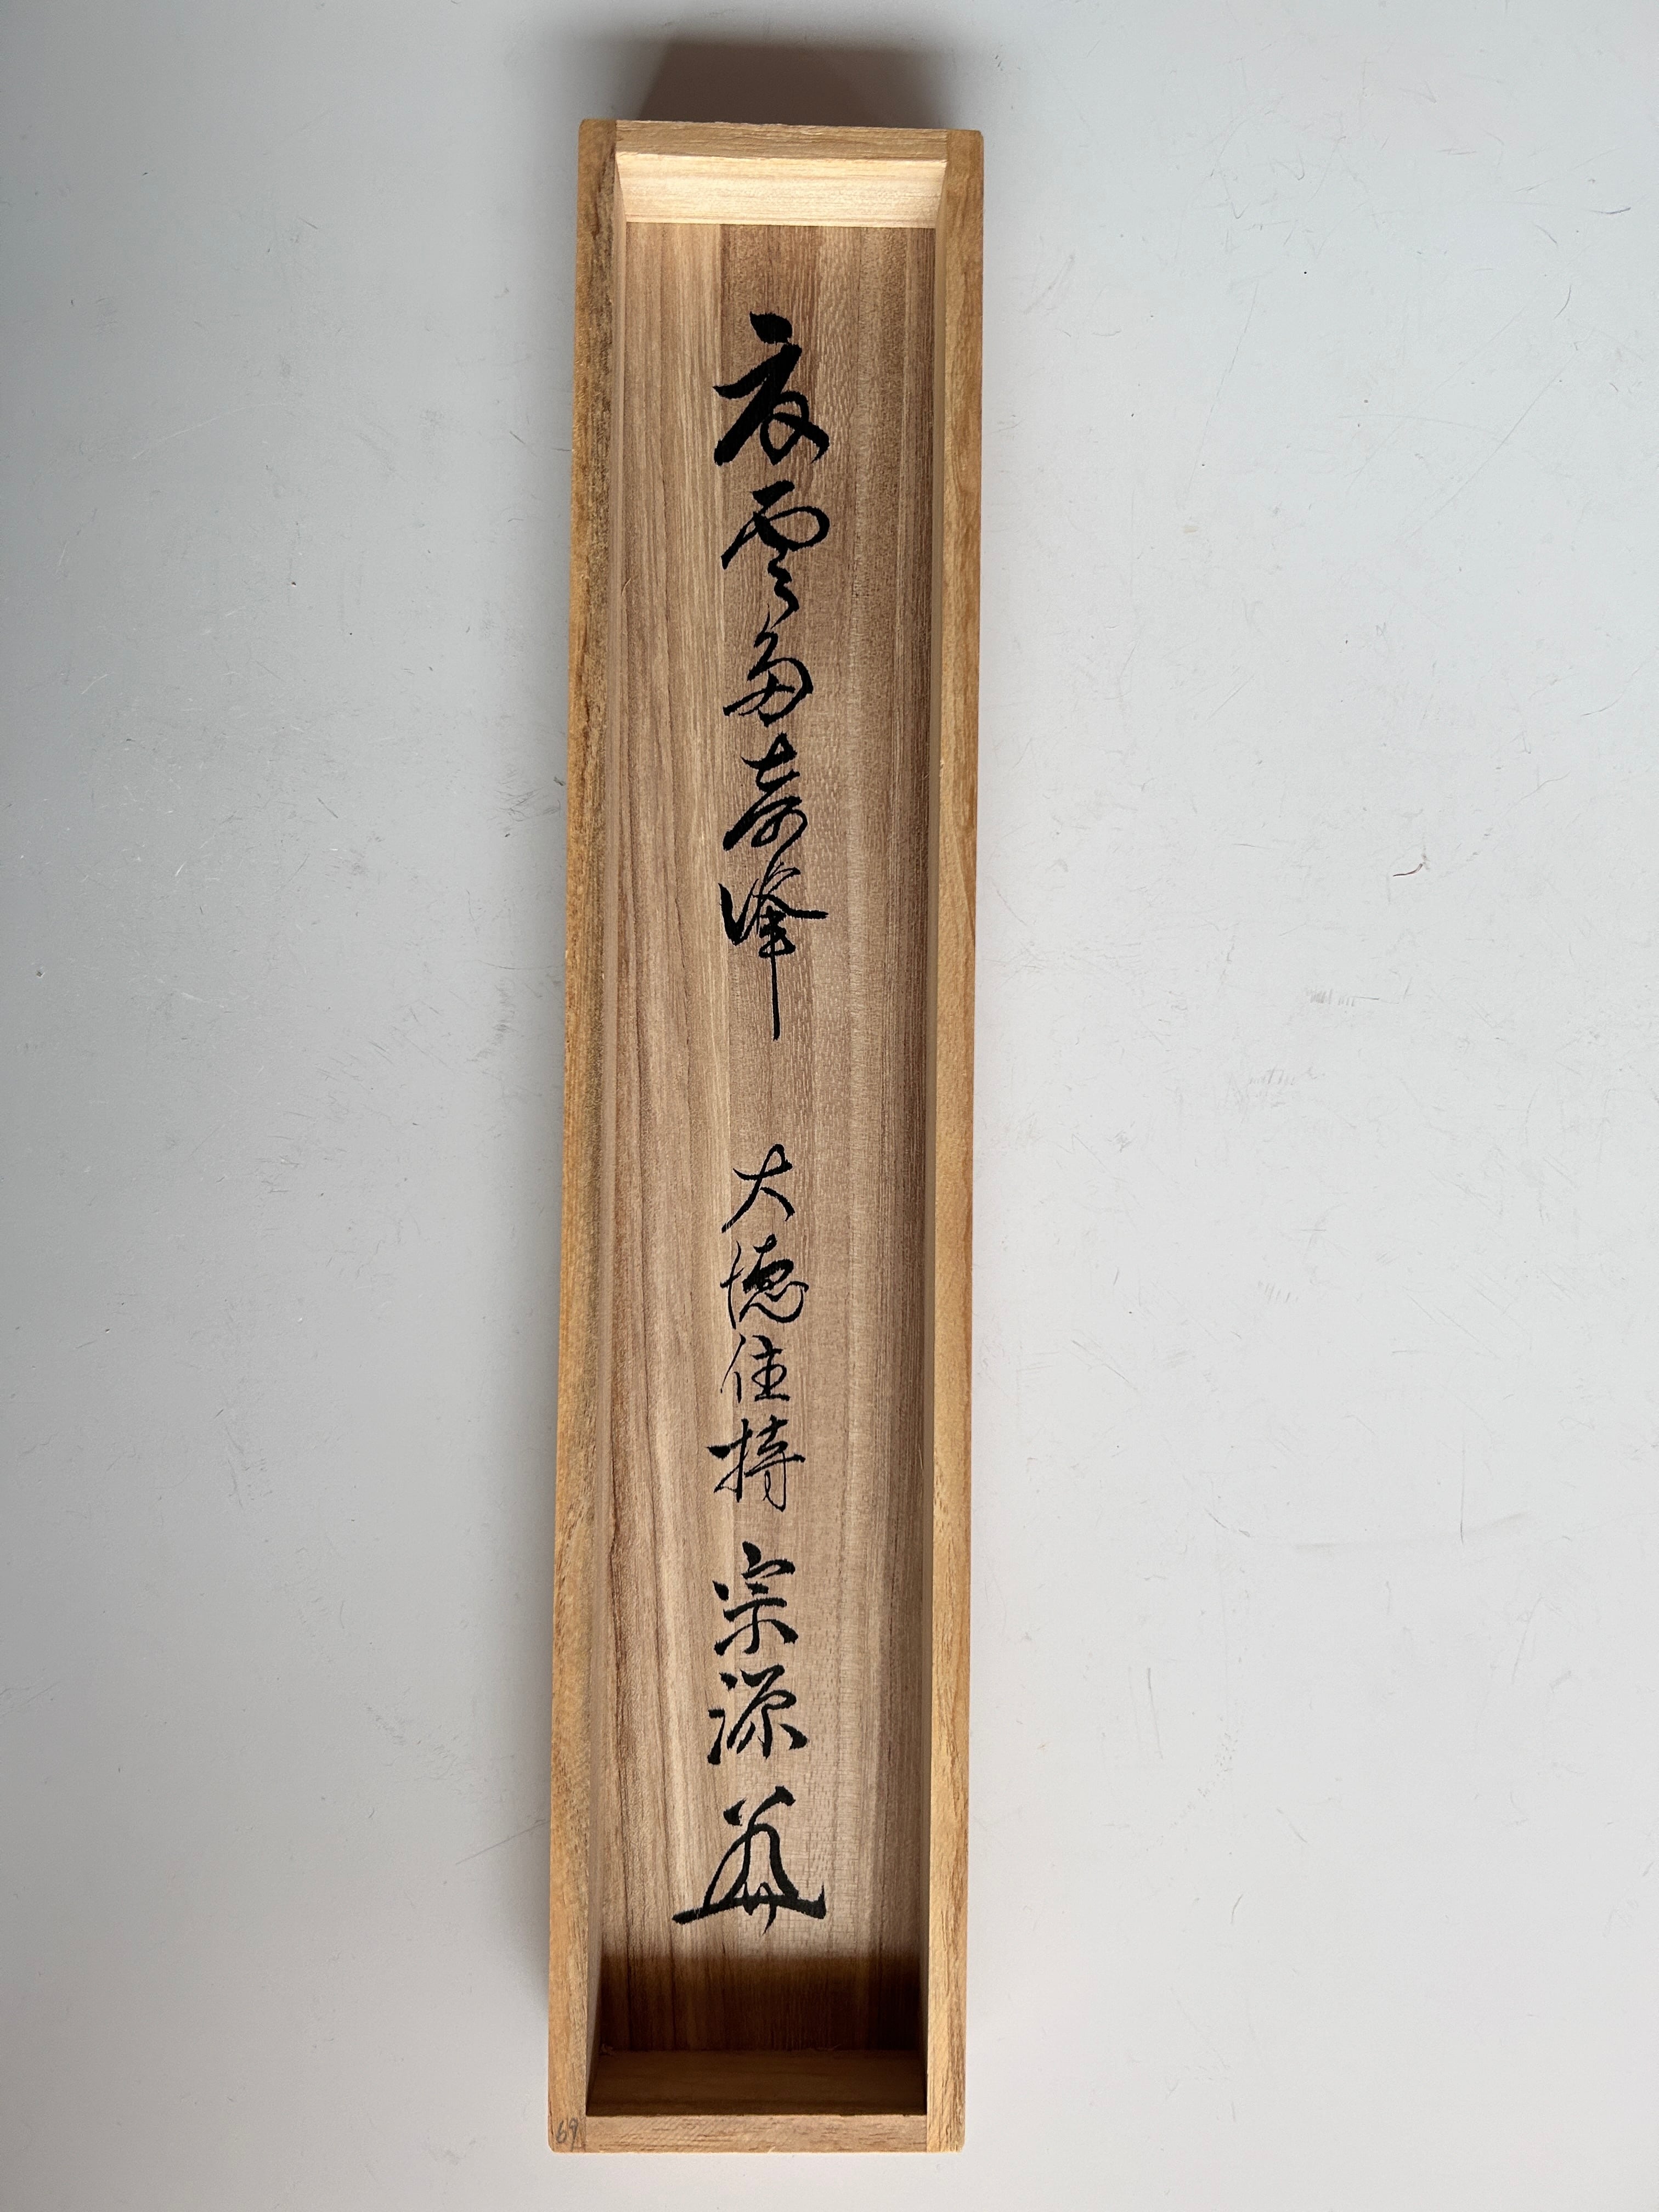 夏雲多奇峰 大徳住持 宗源
69